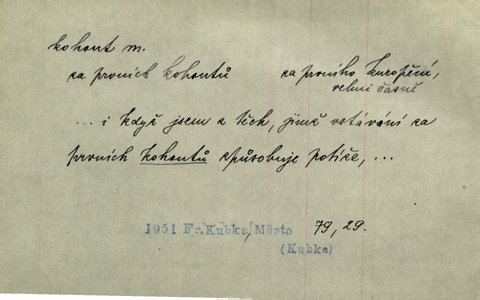 kohout m.
za prvních kohoutů za prvního kuropění,
velmi časně
... i když jsem z těch, jimž vstávání za
prvních kohoutů způsobuje potíže, ...
1951 Fr. Kubka, Město 79, 29.
(Kubka)